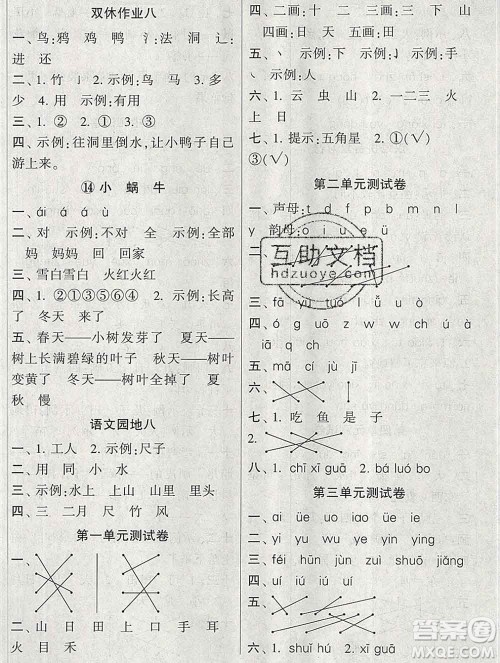 双休作业八
一、鸟:鸦 鸡 鸭 氵:法 洞 辶:
进 还
二、1. 竹 2. 示例:鸟 马 3. 多
少 4. 用 示例:有用
三、1. ② 2. ① 3. ③
四、示例:往洞里倒水,让小鸭子自己
游上来。
⑭ 小 蜗 牛
一、ái á à ù
二、对 示例:不对 全 示例:全部
妈 妈妈 回 回家
三、雪白雪白 火红火红
四、1. ②①③⑤⑥④ 2. 示例:长高
了 冬天 来了
五、春天——小树发芽了 夏天——
树上长满碧绿的叶子 秋天——树叶
变黄了 冬天——树叶全掉了 夏
秋 慢
语文园地八
一、1. 工人 2. 示例:尺子
二、用 同 水 小
三、示例:水上 上山 山里 里头
四、三 二月 尺 竹 风
第一单元测试卷
一、
二、山 日 田 上 口 手 耳
火 目 禾
四、二画: 三画:三 上 土 山
四画:日 天 五画:田
五、 示例:
示例:人
六、1. 云 虫 山 2. 一二三 火
上 日
七、1. 提示:五角星 2. ①(√)
③(√)
第二单元测试卷
一、声母:t d f p b m n l
y 韵母: o i u e ü
二、
三、fā yú tǔ
四、ó g
iā q ch
五、mǎ cí jú jī
六、
七、1. 吃 鱼 是 子
2.
八、1. chī xī guā 2. bá luó bo
第三单元测试卷
一、ai üe uo iao üe iu
二、yi wu yu ye yin ying
三、féi hūn jùn zuì shuō jiǎng
四、ui iu iu ui
五、
六、1. shuǐ hú
互助文档
hdzuoye.com
答案圈
MXQE.COM